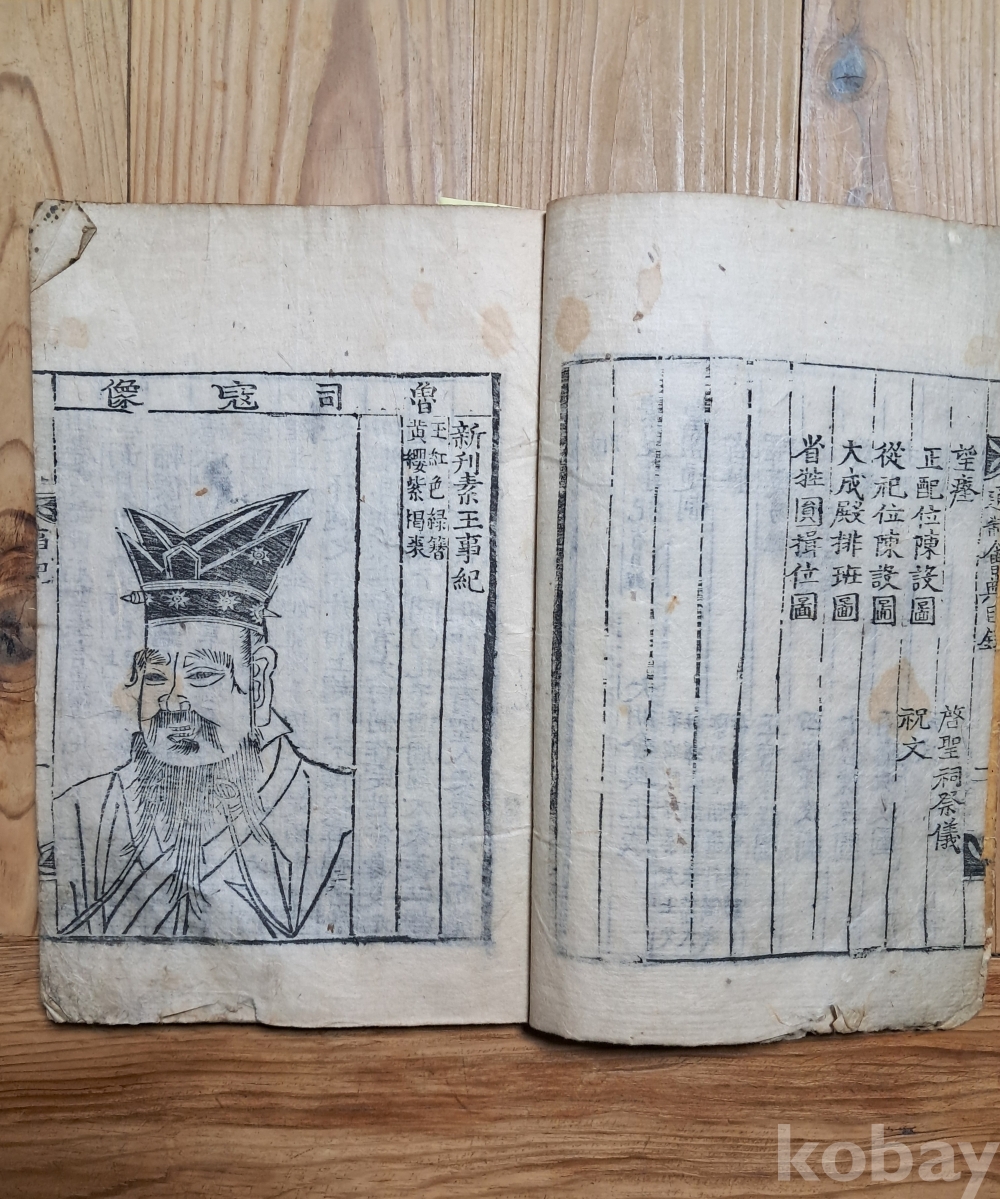 望瘞
啓聖祠祭儀
正配位陳設圖
祝文
從祀位陳設圖
大成殿排班圖
省牲圓揖位圖
二
魯司寇像
新刊素王事紀
玉紅色綠簪
黃纓紫楬裘
kobay